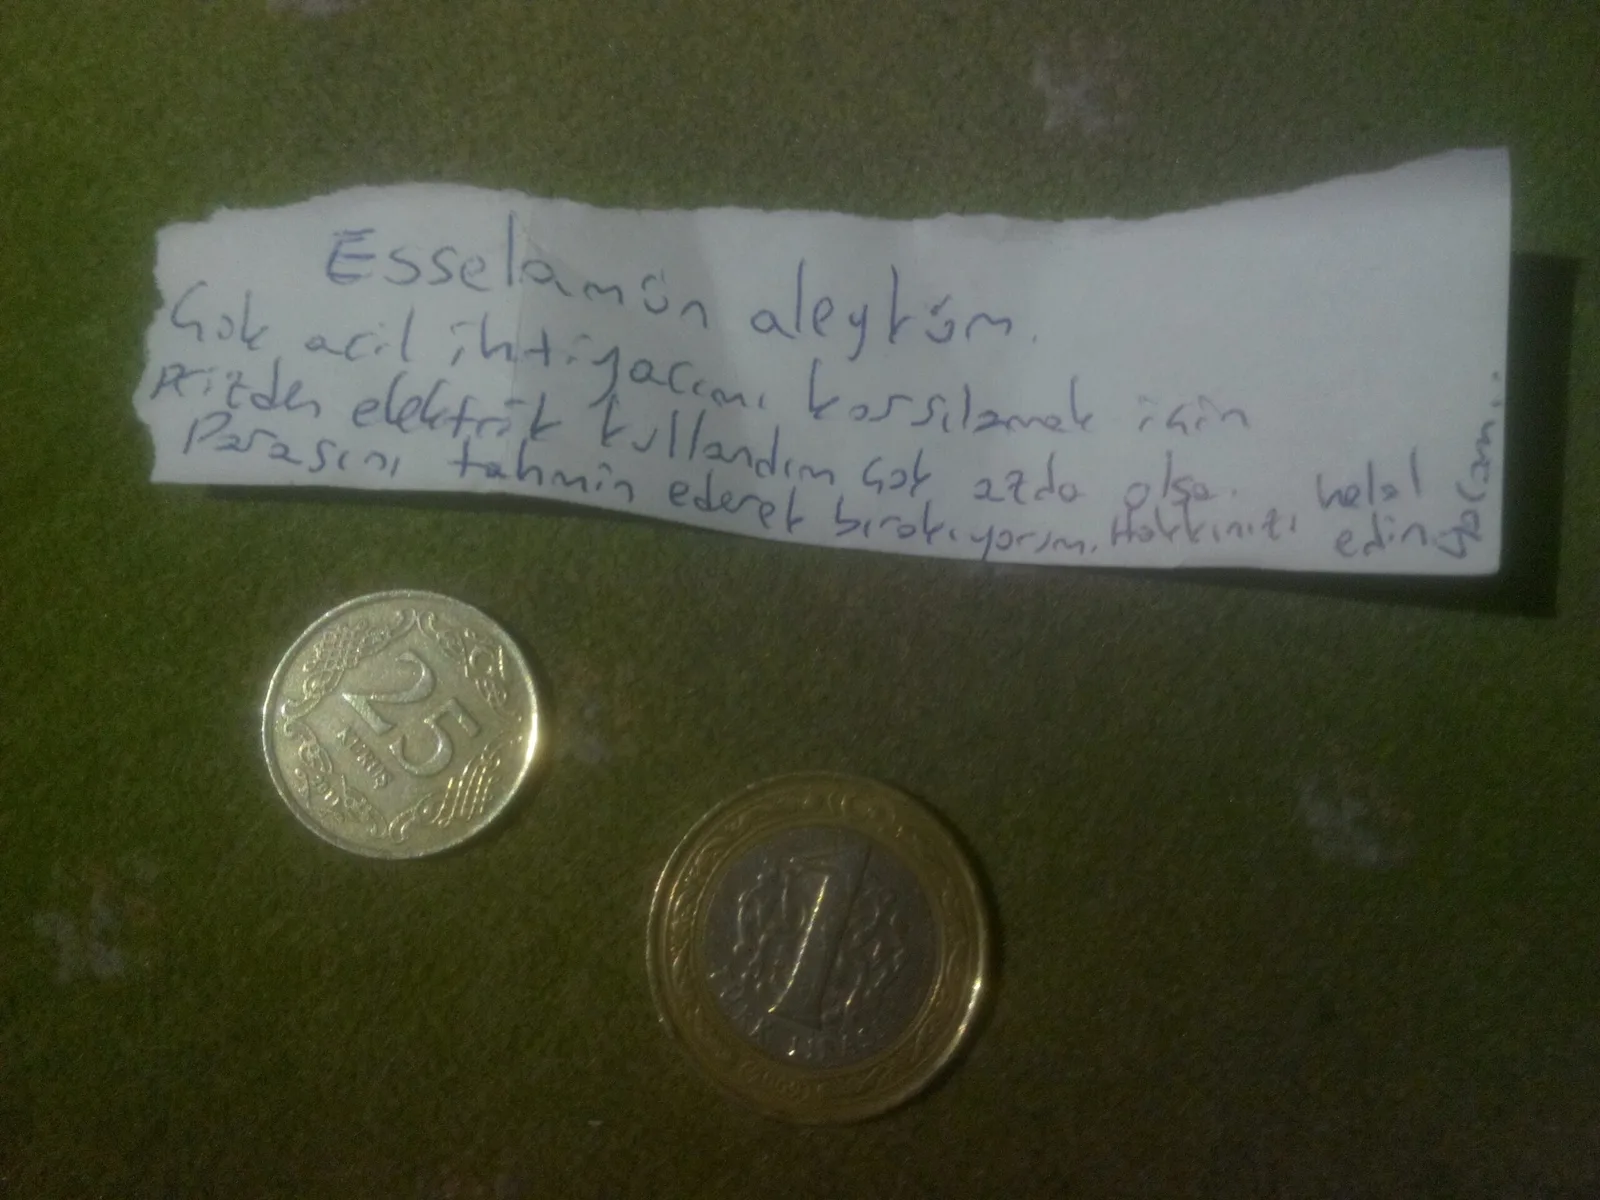 Esselamün aleyküm.
Çok acil ihtiyacımı karşılamak için
Prizden elektrik kullandım çok azda olsa.
Parasını tahmin ederek bırakıyorum. Hakkınızı helal
edin
25
KURUŞ
2011
1
LİRA